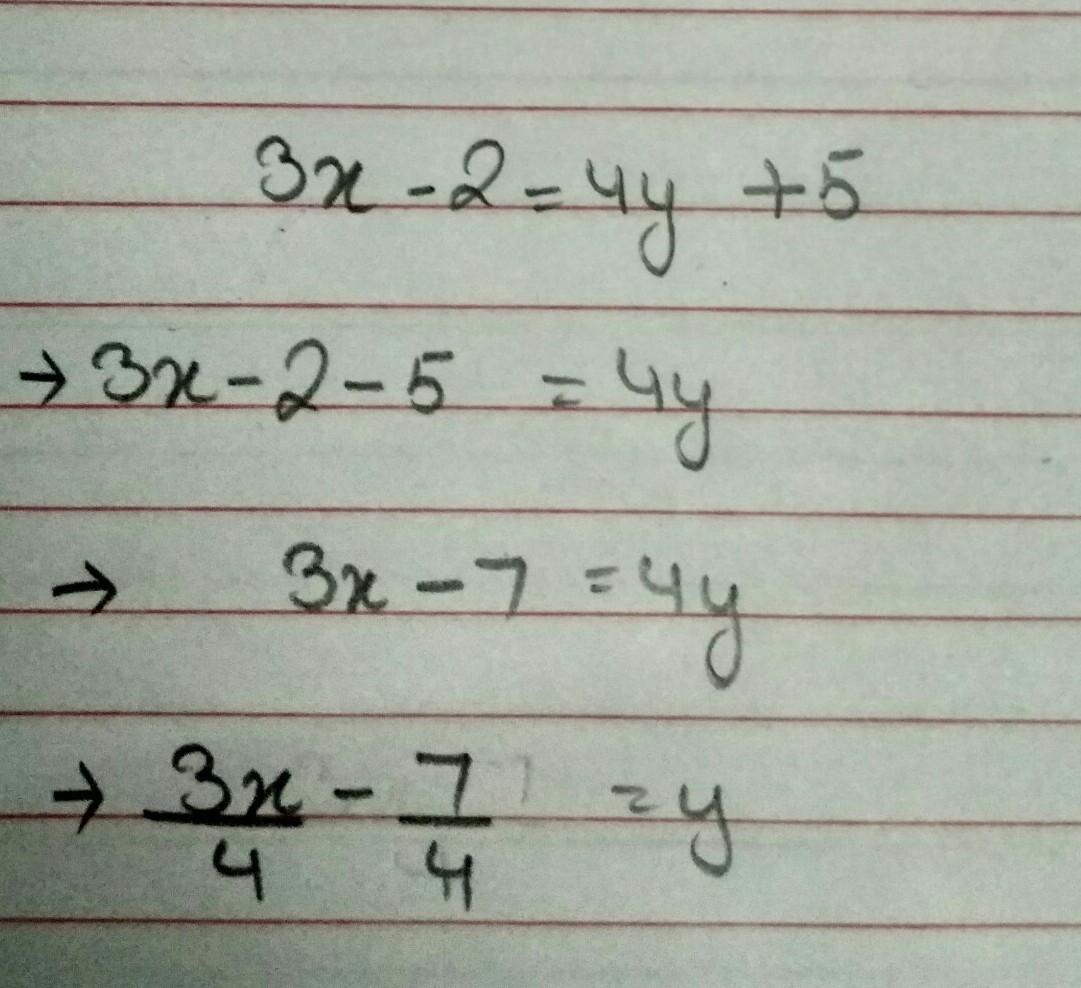 3x - 2 = 4y + 5
→ 3x - 2 - 5 = 4y
→ 3x - 7 = 4y
→ 3x/4 - 7/4 = y